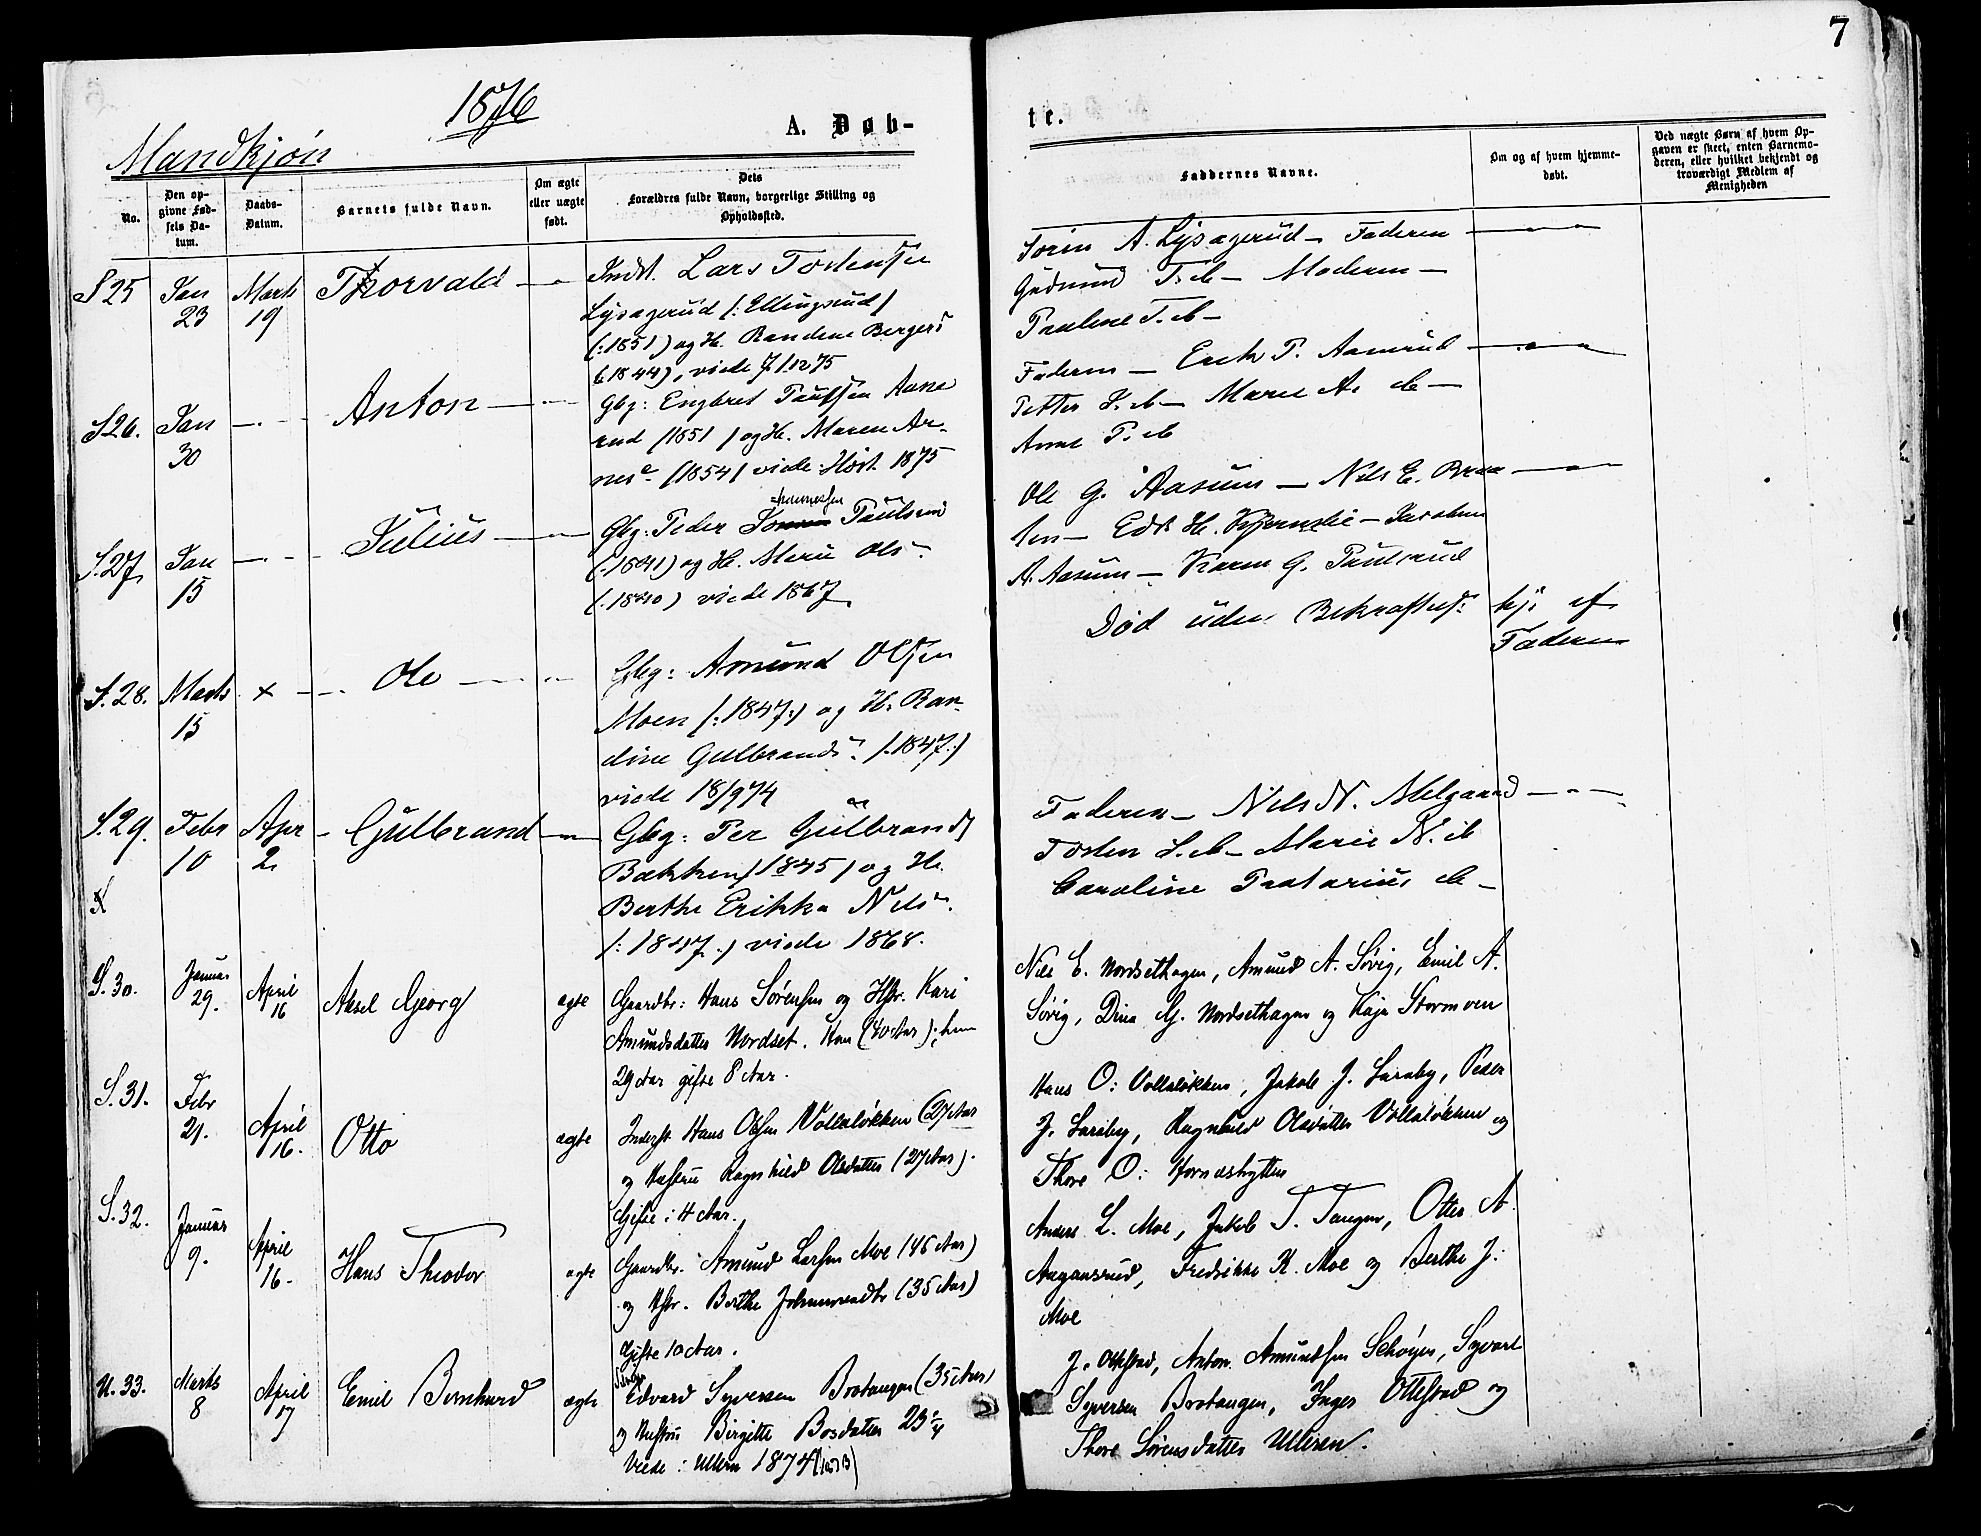 7
1876
Mandkjøn
A. Døb-
te.
No.
Den op-
givne Fød-
sels Da-
tum.
Daabs-
Datum.
Barnets fulde Navn.
Om ægte
eller uægte
født.
Dets
Forældres fulde Navn, borgerlige Stilling og
Opholdssted.
Faddernes Navne.
Om og af hvem hjemme-
døbt.
Ved uægte Børn af hvem Op-
gaven er skeet, enten Barnemo-
deren, eller hvilket bekjendt og
troværdigt Medlem af
Menigheden
S 25 Jan 23 Marts 19 Thorvald
Indst. Lars Tostensen
Lysagerud (: Ellingsrud)
(: 1851) og H. Randine Bergers
(: 1844), viede 1875
Søren A. Lysagerud - Faderen
Gudmund T. do - Moderen -
Pauline T. do -
S 26. Jan 30 Anton
Gbg: Engbret Paulsen Aame
rud (1851) og H. Maren Ar-
nesd (1854) viede Høst 1875
Faderen - Erik P. Aamrud
Petter do - Maren A. do -
Anne P. do
S. 27 Jan 15 Julius
Gbg: Peder Johannessen Paulsrud
(: 1841) og H. Marie Ols
(: 1840) viede 1867
Ole G. Aasum - Nils E. Braa
ten - Edv. H. Kjernslie -
A. Aasum - Karen G. Paulsrud
S. 28. Marts 15 x Ole
Gbg: Amund Olsen
Moen (: 1847 :) og H. Ran-
dine Gulbrands (: 1847 :)
viede 18/9 74
Død uden Bekræftels: hj: af
Faderen
S. 29. Febr 10 Apr 2 Gulbrand
Gbg: Per Gulbrands
Bækken (1845) og H.
Berthe Erikka Nils
(: 1847 :) viede 1868.
Faderen - Nils N. Melgaard
Tosten S. do - Marie N. do
Caroline Pratorius do -
S. 30. Januar 29. April 16 Aksel Georg ægte
Gaardbr: Hans Sørensen og Hstr. Kari
Amundsdatter Nordset. Han (40 Aar); hun
29 Aar gifte 8 Aar.
Nils E. Nordsethagen, Amund A. Sørig, Emil A.
Sørig, Dina G. Nordsethagen og Kaja Stormoen
S. 31. Febr 21. April 16. Otto ægte
Inderst Hans Olsen Vollaløkken (27 Aar
og Hustru Ragnhild Olsdatter (27 Aar).
Gifte i 4 Aar.
Hans O: Vollaløkken, Jakob J. Laraby, Peder
J. Laraby, Ragnhild Olsdatter Vollaløkken og
Thore O: Hornæshytten
S. 32. Januar 9. April 16. Hans Theodor ægte
Gaardbr. Amund Larsen Moe (45 Aar)
og Hstr. Berthe Johannesdtr (35 Aar)
Gifte 10 Aar.
Anders L. Moe, Jakob T. Tangen, Otter A.
Augansrud, Fredrikke K. Moe og Berthe J:
Moe
U. 33. Marts 8 April 17 Emil Bernhard ægte
Edvard Syversen Brotangen (35 Aar)
og Hustru Birgitte Bosdatter 23 ¼
Viede i Ullern 1874 (1853)
J. Ottestad, Anton Amundsen Schøyen, Syvert
Syversen Brotangen, Inger Ottestad og
Thore Sørensdatter Ulleren.